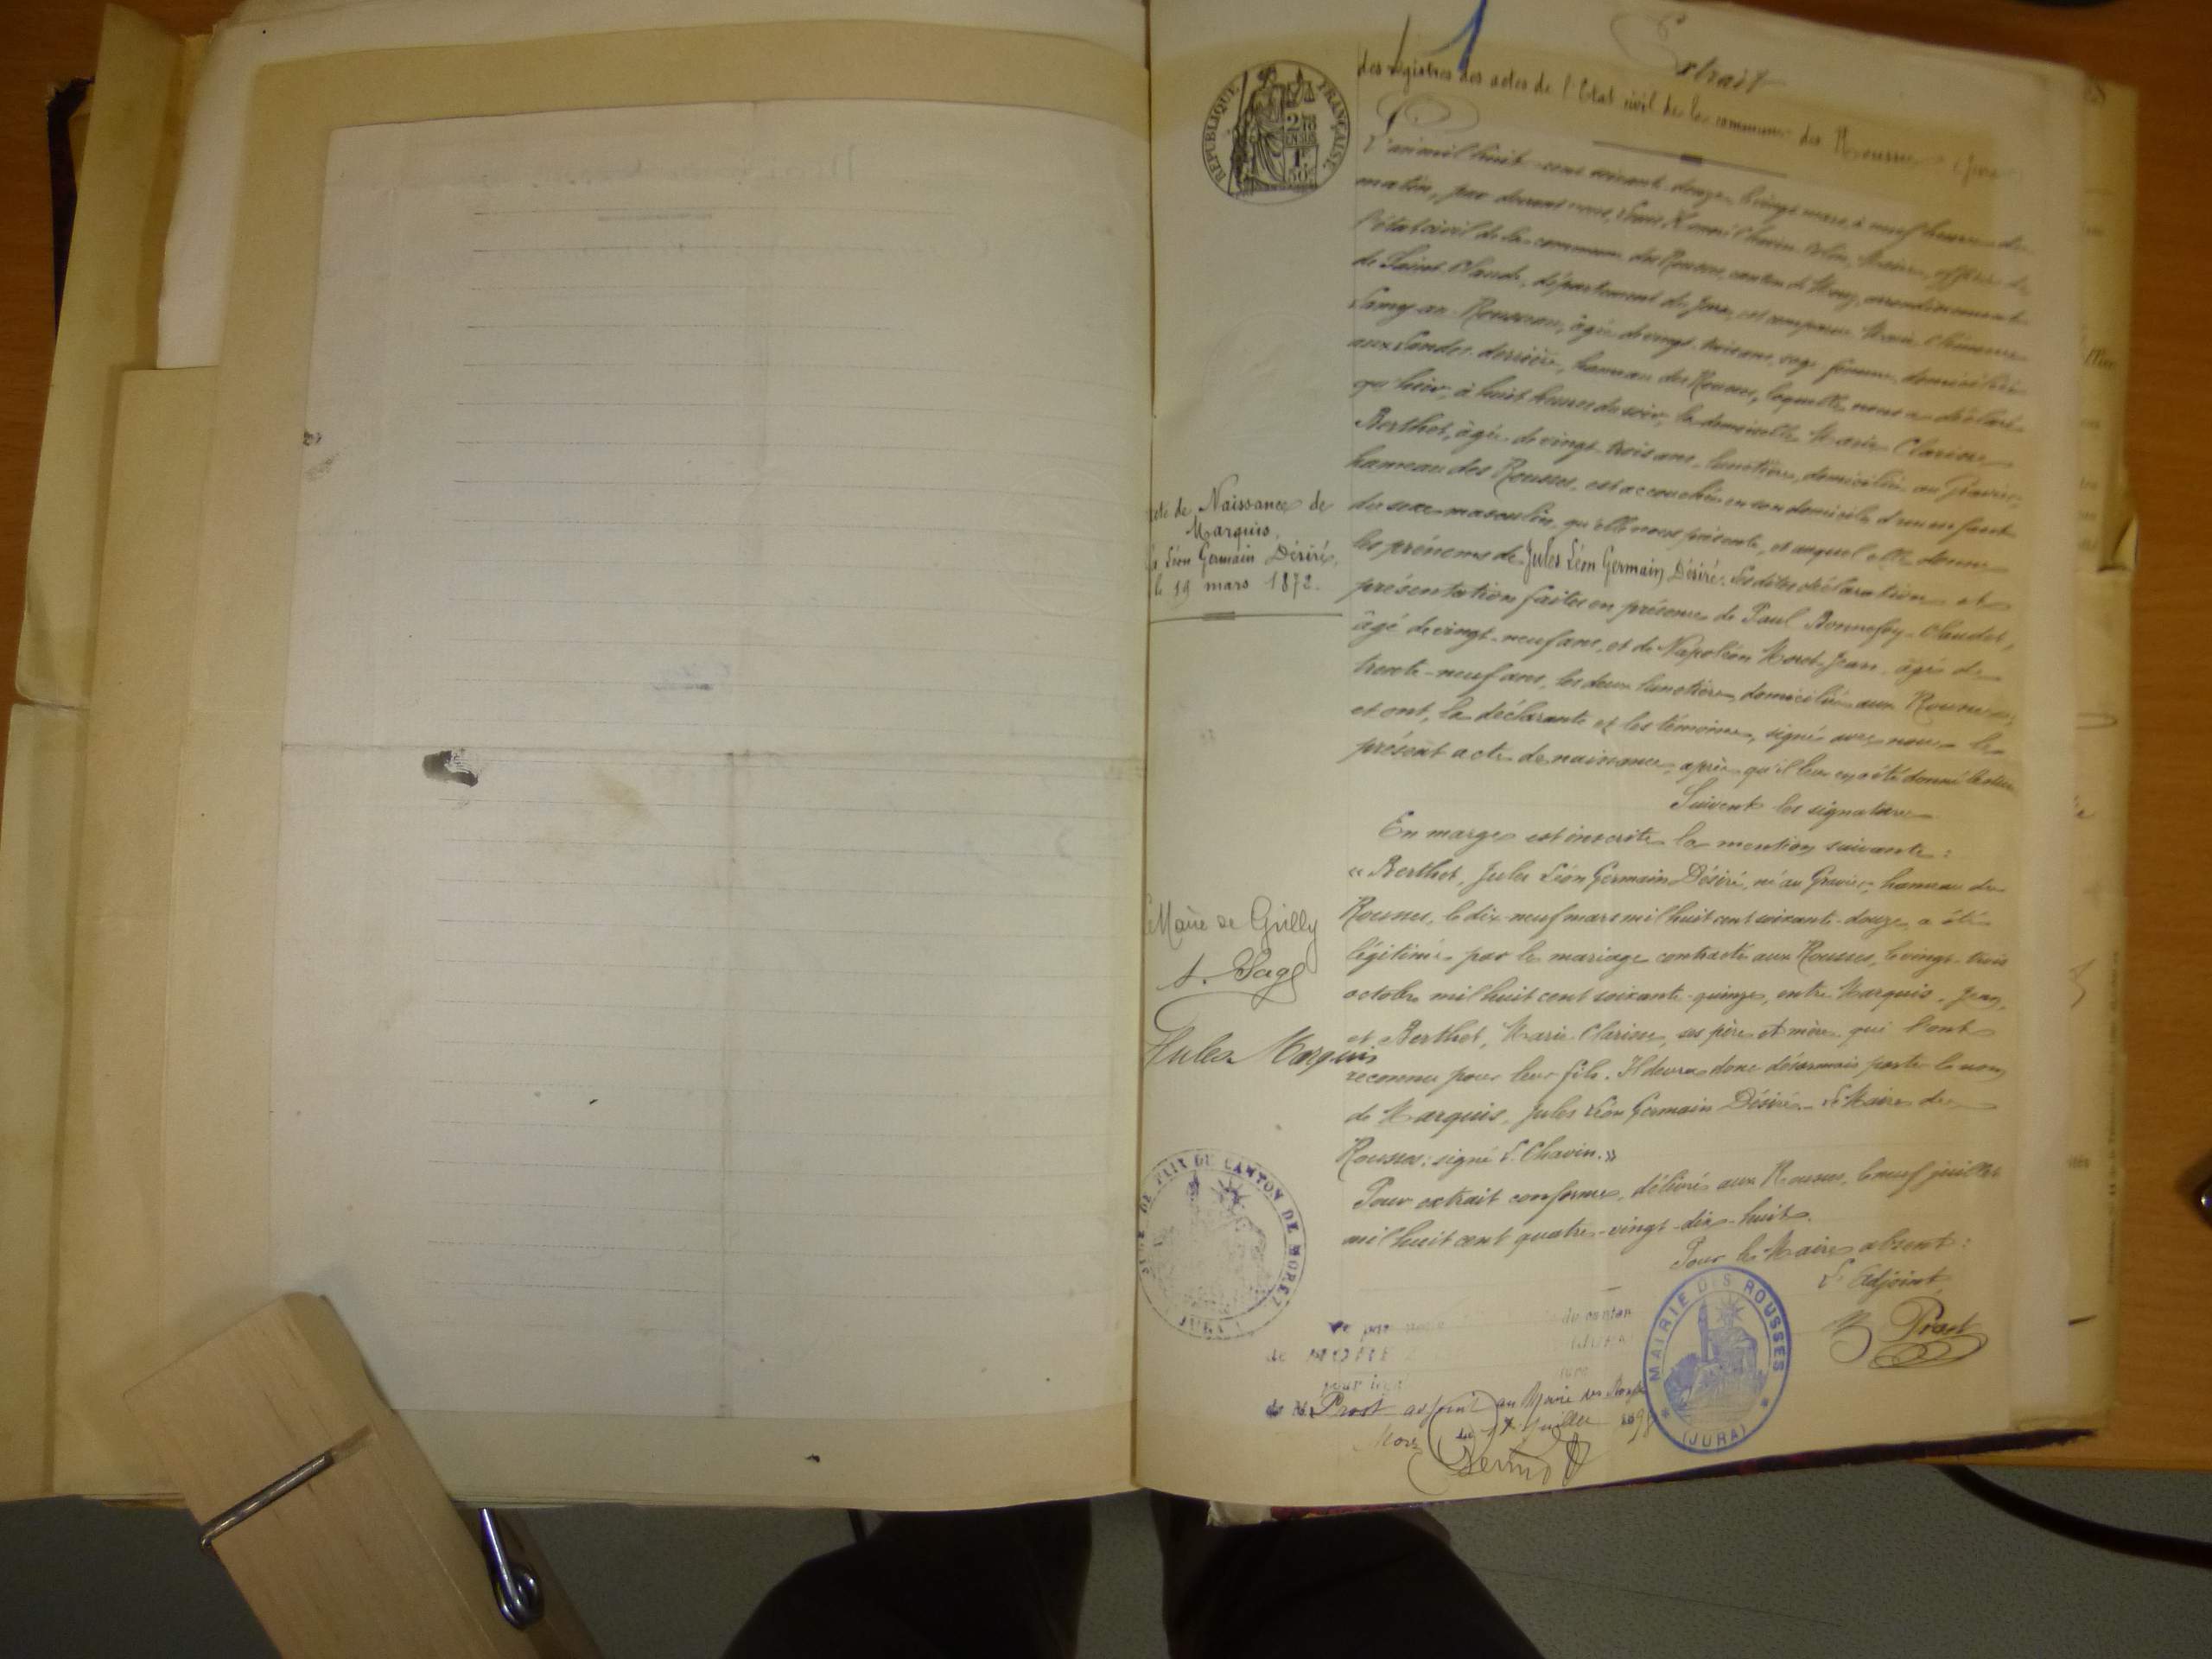 Extrait
des registres des actes de l'Etat civil de la commune des Rousses (Jura
RÉPUBLIQUE FRANÇAISE
2/10
EN SUS
1F
50c
L'an mil huit cent soixante-douze, le vingt mars à neuf heures du
matin, par devant nous, Chavin Maire, officier de
l'état civil de la commune des Rousses, canton de Morez, arrondissement
de Saint-Claude, département du Jura, est comparue Marie
Lamy-au-Rousseau, âgée de vingt-trois ans, sage-femme, domiciliée
aux Landes-derrière, hameau des Rousses, laquelle nous a déclaré
qu'hier, à huit heures du soir, la demoiselle Marie Clarisse
Berthet, âgée de vingt-trois ans, lunetière, domiciliée au Gravier,
hameau des Rousses, est accouchée en son domicile d'un enfant
du sexe masculin, qu'elle nous présente, et auquel elle donne
les prénoms de Jules Léon Germain Désiré. Les dites déclaration et
présentation faites en présence de Paul Bonnefoy-Claudet,
âgé de vingt-neuf ans, et de Napoléon Morel-Jean, âgé de
trente-neuf ans, les deux lunetiers, domiciliés aux Rousses;
et ont, la déclarante et les témoins, signé avec nous le
présent acte de naissance, après qu'il leur en a été donné lecture
Suivent les signatures
acte de Naissance de
Marquis,
Léon Germain Désiré,
le 19 mars 1872.
En marge est inscrite la mention suivante:
« Berthet, Jules Léon Germain Désiré, né au Gravier, hameau des
Rousses, le dix-neuf mars mil huit cent soixante-douze, a été
légitimé par le mariage contracté aux Rousses, le vingt-trois
octobre mil huit cent soixante-quinze, entre Marquis, Jean,
et Berthet, Marie-Clarisse, ses père et mère qui l'ont
reconnu pour leur fils. Il devra donc désormais porter le nom
de Marquis, Jules Léon Germain Désiré. Le Maire des
Rousses: signé L. Chavin. »
Pour extrait conforme, délivré aux Rousses, le neuf juillet
mil huit cent quatre-vingt-dix-huit.
Pour le Maire absent:
L'Adjoint,
Prost
Le Maire de Gilly
Jules Marquis
DE PAIX DU CANTON DE MOREZ
JURA
MAIRIE DES ROUSSES
(JURA)
Vu par nous du canton
de
pour
de M. Prost adjoint au Maire des Rousses
Morez le juillet 1898